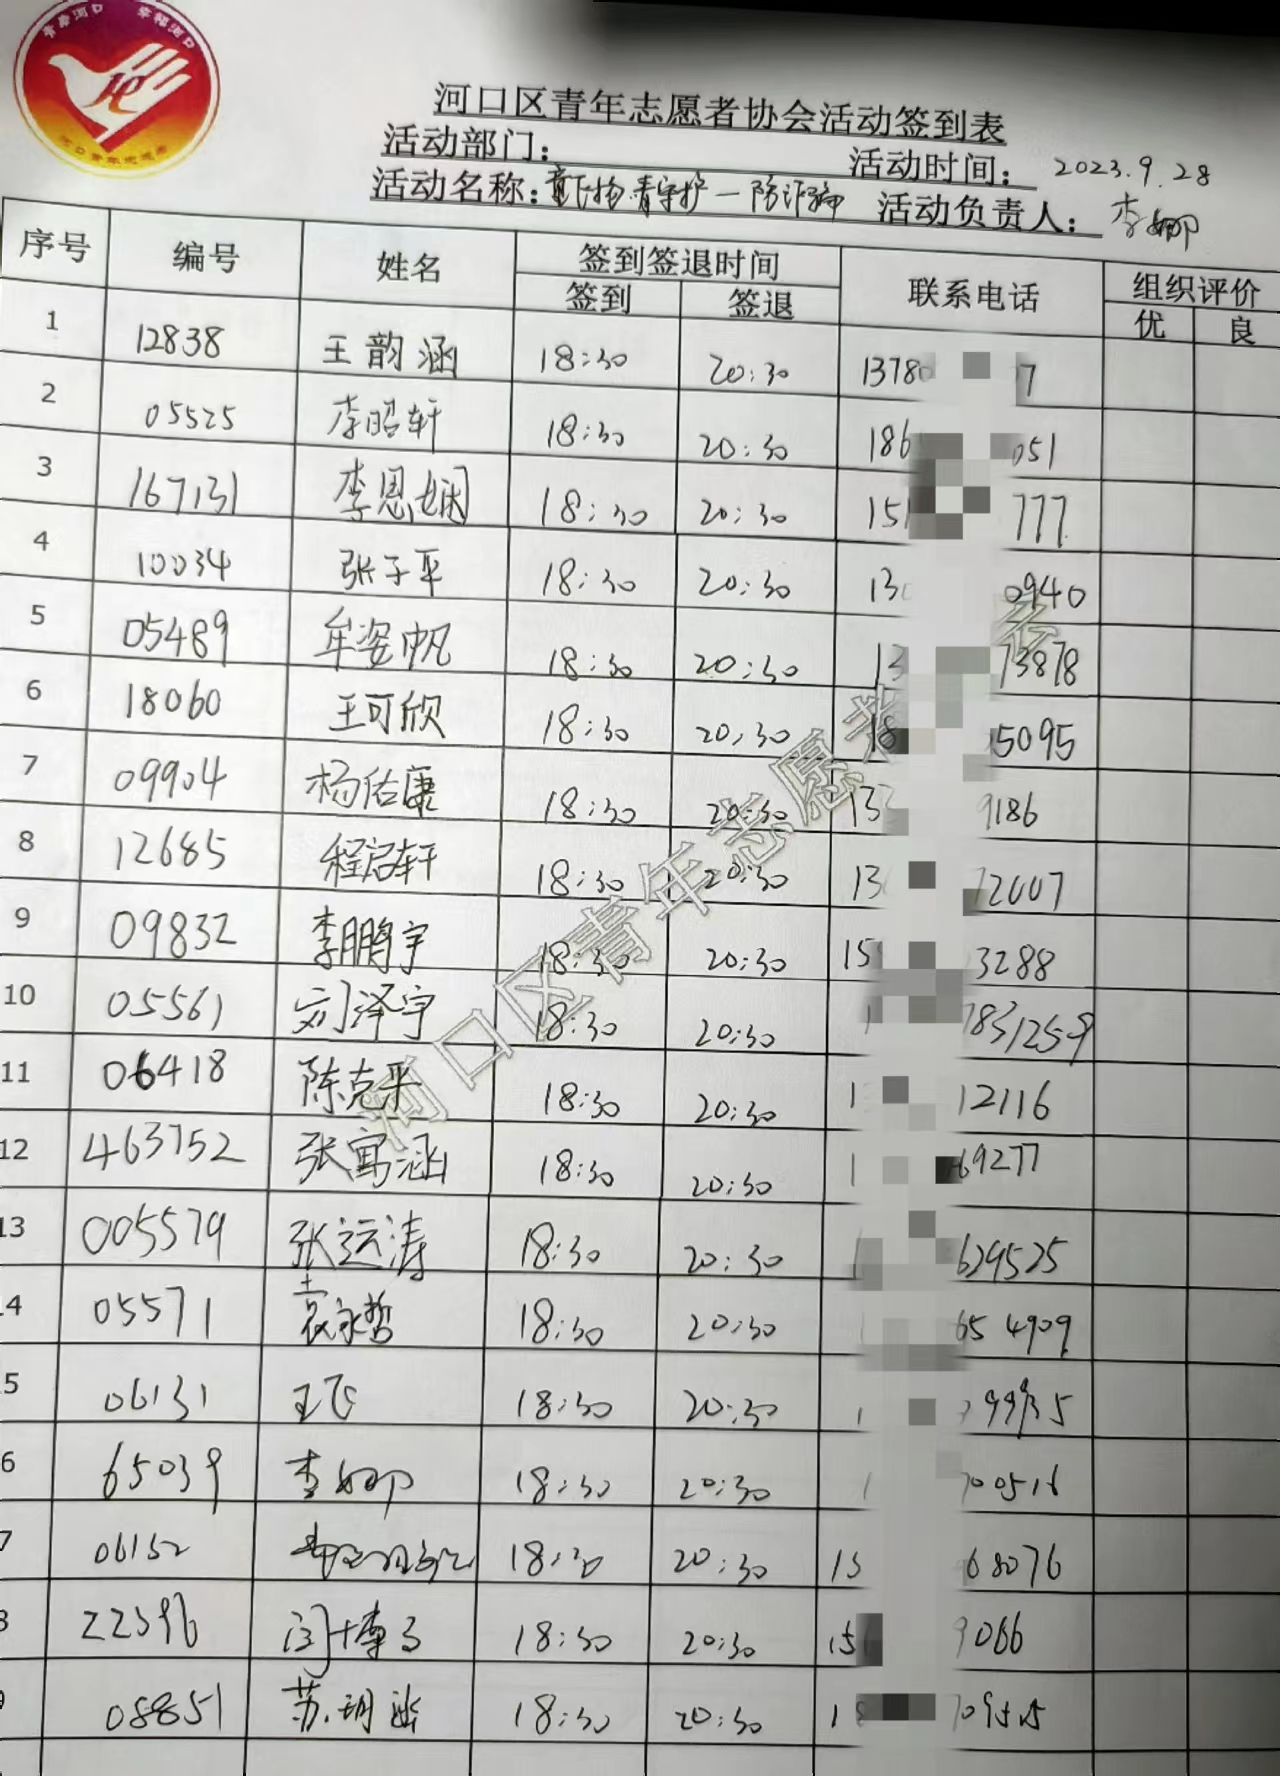 青春河口 幸福河口
河口区青年志愿者协会活动签到表
活动部门： 活动时间： 2023.9.28
活动名称： 守护一防诈骗 活动负责人： 李娜
序号 编号 姓名 签到签退时间 联系电话 组织评价
签到 签退 优 良
1 12838 王韵涵 18:30 20:30 1378 7
2 05525 李昭轩 18:30 20:30 186 051
3 167131 李恩娴 18:30 20:30 151 777
4 10034 张子平 18:30 20:30 130 0940
5 05489 牟姿帆 18:30 20:30 13 73878
6 18060 王可欣 18:30 20:30 18 5095
7 09904 杨佑康 18:30 20:30 133 9186
8 12685 程启轩 18:30 20:30 13 2007
9 09832 李鹏宇 18:30 20:30 15 3288
10 05561 刘泽宇 18:30 20:30 1 7831259
11 06418 陈克平 18:30 20:30 1 12116
12 463752 张寓涵 18:30 20:30 1 69277
13 005579 张运涛 18:30 20:30 1 629525
4 05571 袁永哲 18:30 20:30 654909
5 06131 王飞 18:30 20:30 1
6 65039 李娜 18:30 20:30 1 00516
7 06152 18:30 20:30 15 68076
8 22396 闫博 18:30 20:30 15 9066
05851 苏玥 18:30 20:30 1 709515
河口区青年志愿者